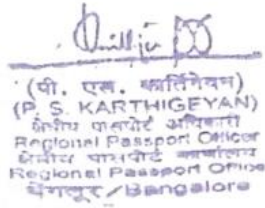 (पी. एस. कार्तिगेयन)
(P. S. KARTHIGEYAN)
क्षेत्रीय पासपोर्ट अधिकारी
Regional Passport Officer
क्षेत्रीय पासपोर्ट कार्यालय
Regional Passport Office
बेंगलूर / Bangalore